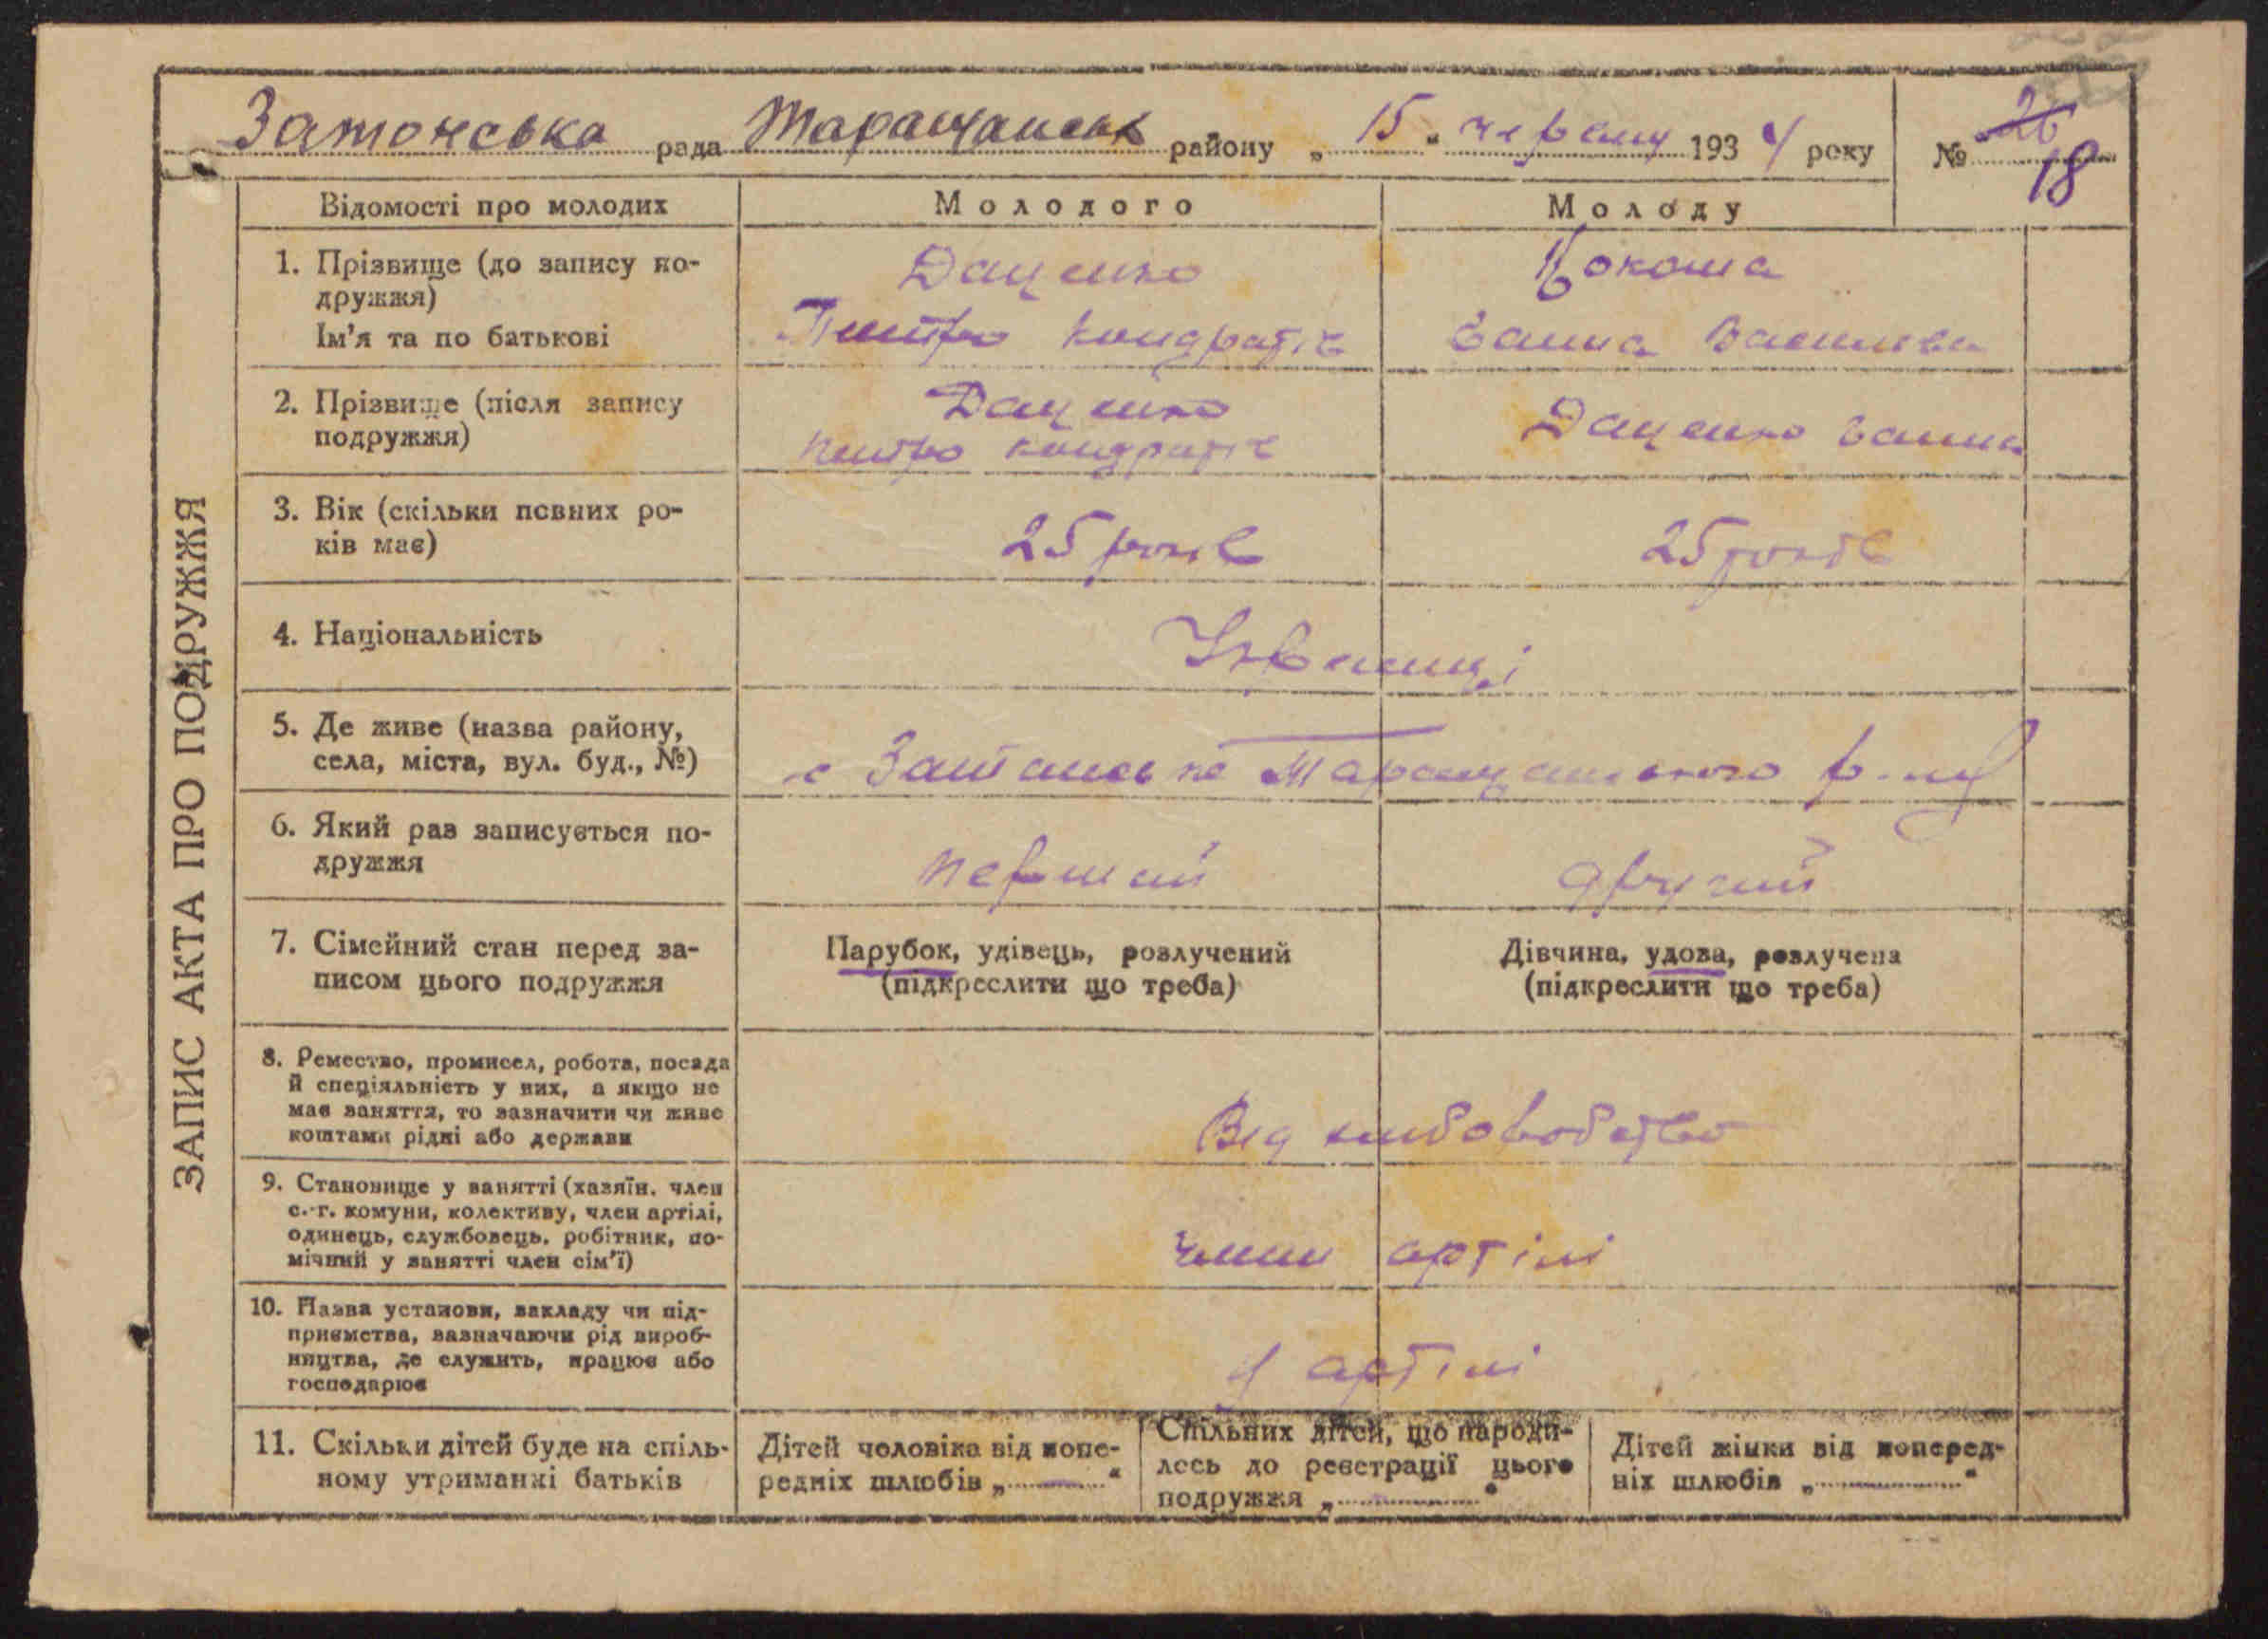 Затонська рада Таращанськ району „ 15 “ червня 1934 року № 26
18
ЗАПИС АКТА ПРО ПОДРУЖЖЯ
Відомості про молодих
Молодого
Молоду
1. Прізвище (до запису по-
дружжя)
Ім'я та по батькові
Даценко
Кокоша
Василівна
2. Прізвище (після запису
подружжя)
Даценко
Даценко
3. Вік (скільки повних ро-
ків має)
25 років
25 років
4. Національність
5. Де живе (назва району,
села, міста, вул. буд., №)
с Затонське Таращанського р-ну
6. Який раз записується по-
дружжя
перший
другий
7. Сімейний стан перед за-
писом цього подружжя
Парубок, удівець, розлучений
(підкреслити що треба)
Дівчина, удова, розлучена
(підкреслити що треба)
8. Ремество, промисел, робота, посада
й спеціяльність у них, а якщо не
має заняття, то зазначити чи живе
коштами рідні або держави
Від хліборобство
9. Становище у занятті (хазяїн, член
с.-г. комуни, колективу, член артілі,
одинець, службовець, робітник, по-
мічний у занятті член сім'ї)
член артілі
10. Назва установи, закладу чи під-
приємства, зазначаючи рід вироб-
ництва, де служить, працює або
господарює
У артілі
11. Скільки дітей буде на спіль-
ному утриманні батьків
Дітей чоловіка від попе-
редніх шлюбів „ — “
Спільних дітей, що народи-
лось до реєстрації цього
подружжя „ “
Дітей жінки від поперед-
ніх шлюбів „ “